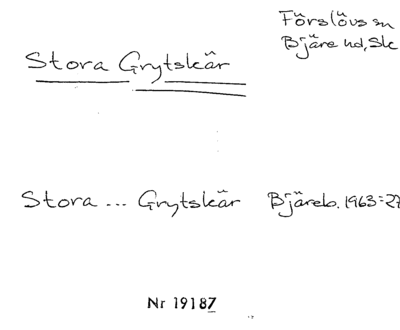 Förslövs sn
Bjäre hd, Sk
Stora Grytskär
Stora ... Grytskär Bjäreb. 1963:27
Nr 19187